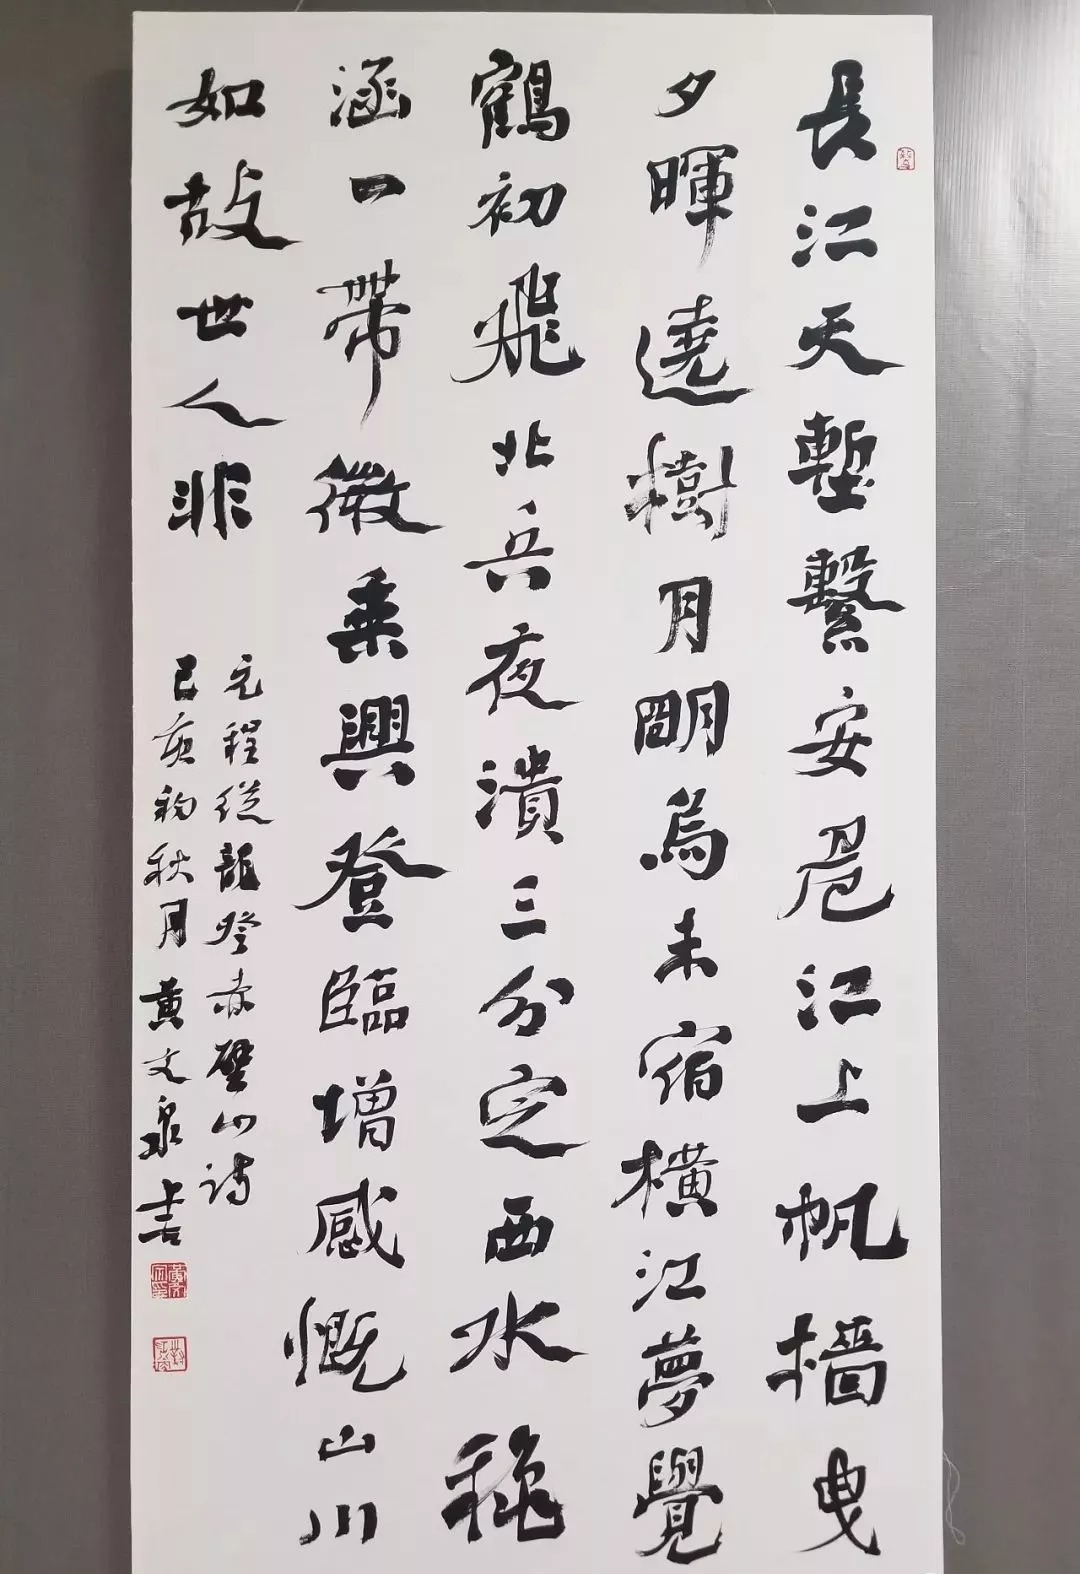 長江天塹繫安危江上帆檣曳
夕暉遶樹月明烏未宿橫江夢覺
鶴初飛北兵夜潰三分定西水穐
涵一帶微乗興登臨增感慨山川
如故世人非
元程從龍登赤壁山詩
己亥初秋月黄文泉書